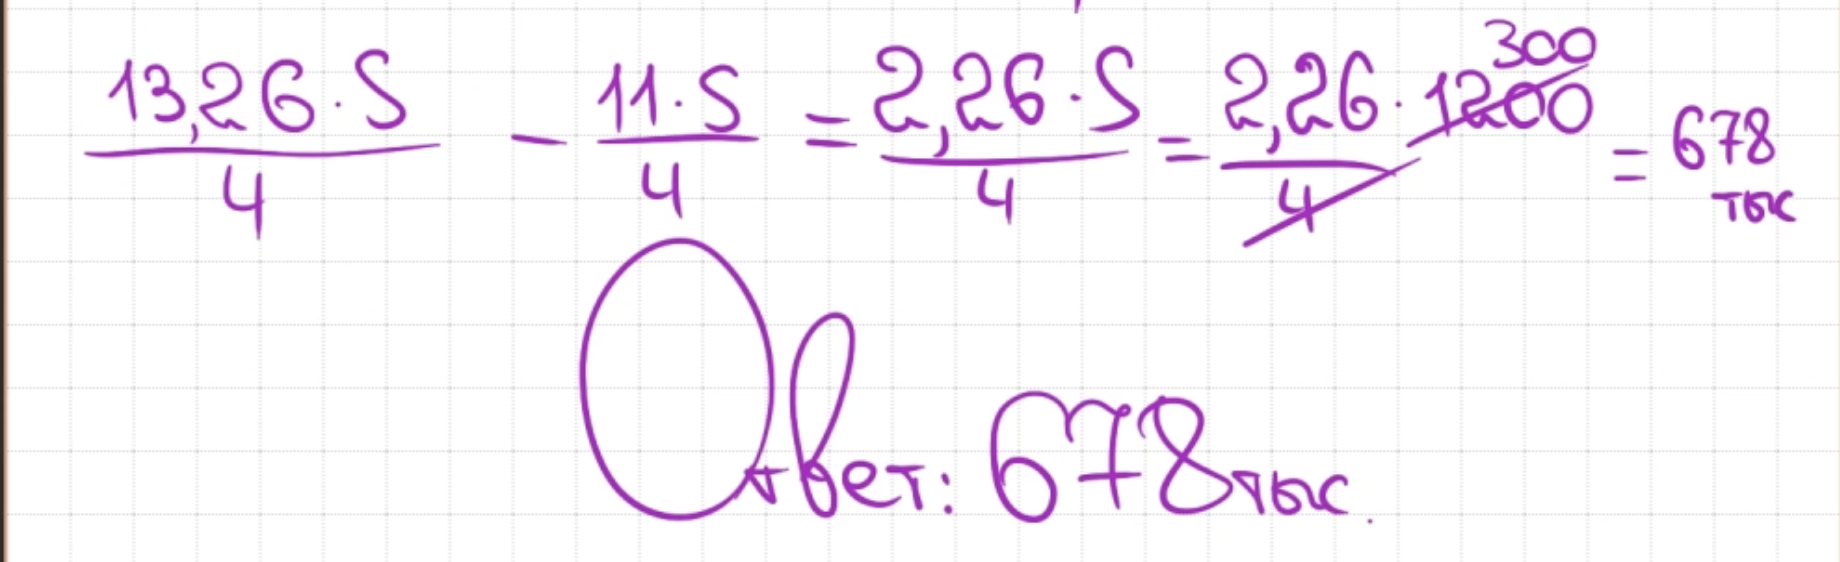 13,26·S/4 - 11·S/4 = 2,26·S/4 = 2,26·1200/4 300 = 678 тыс
Ответ: 678 тыс.